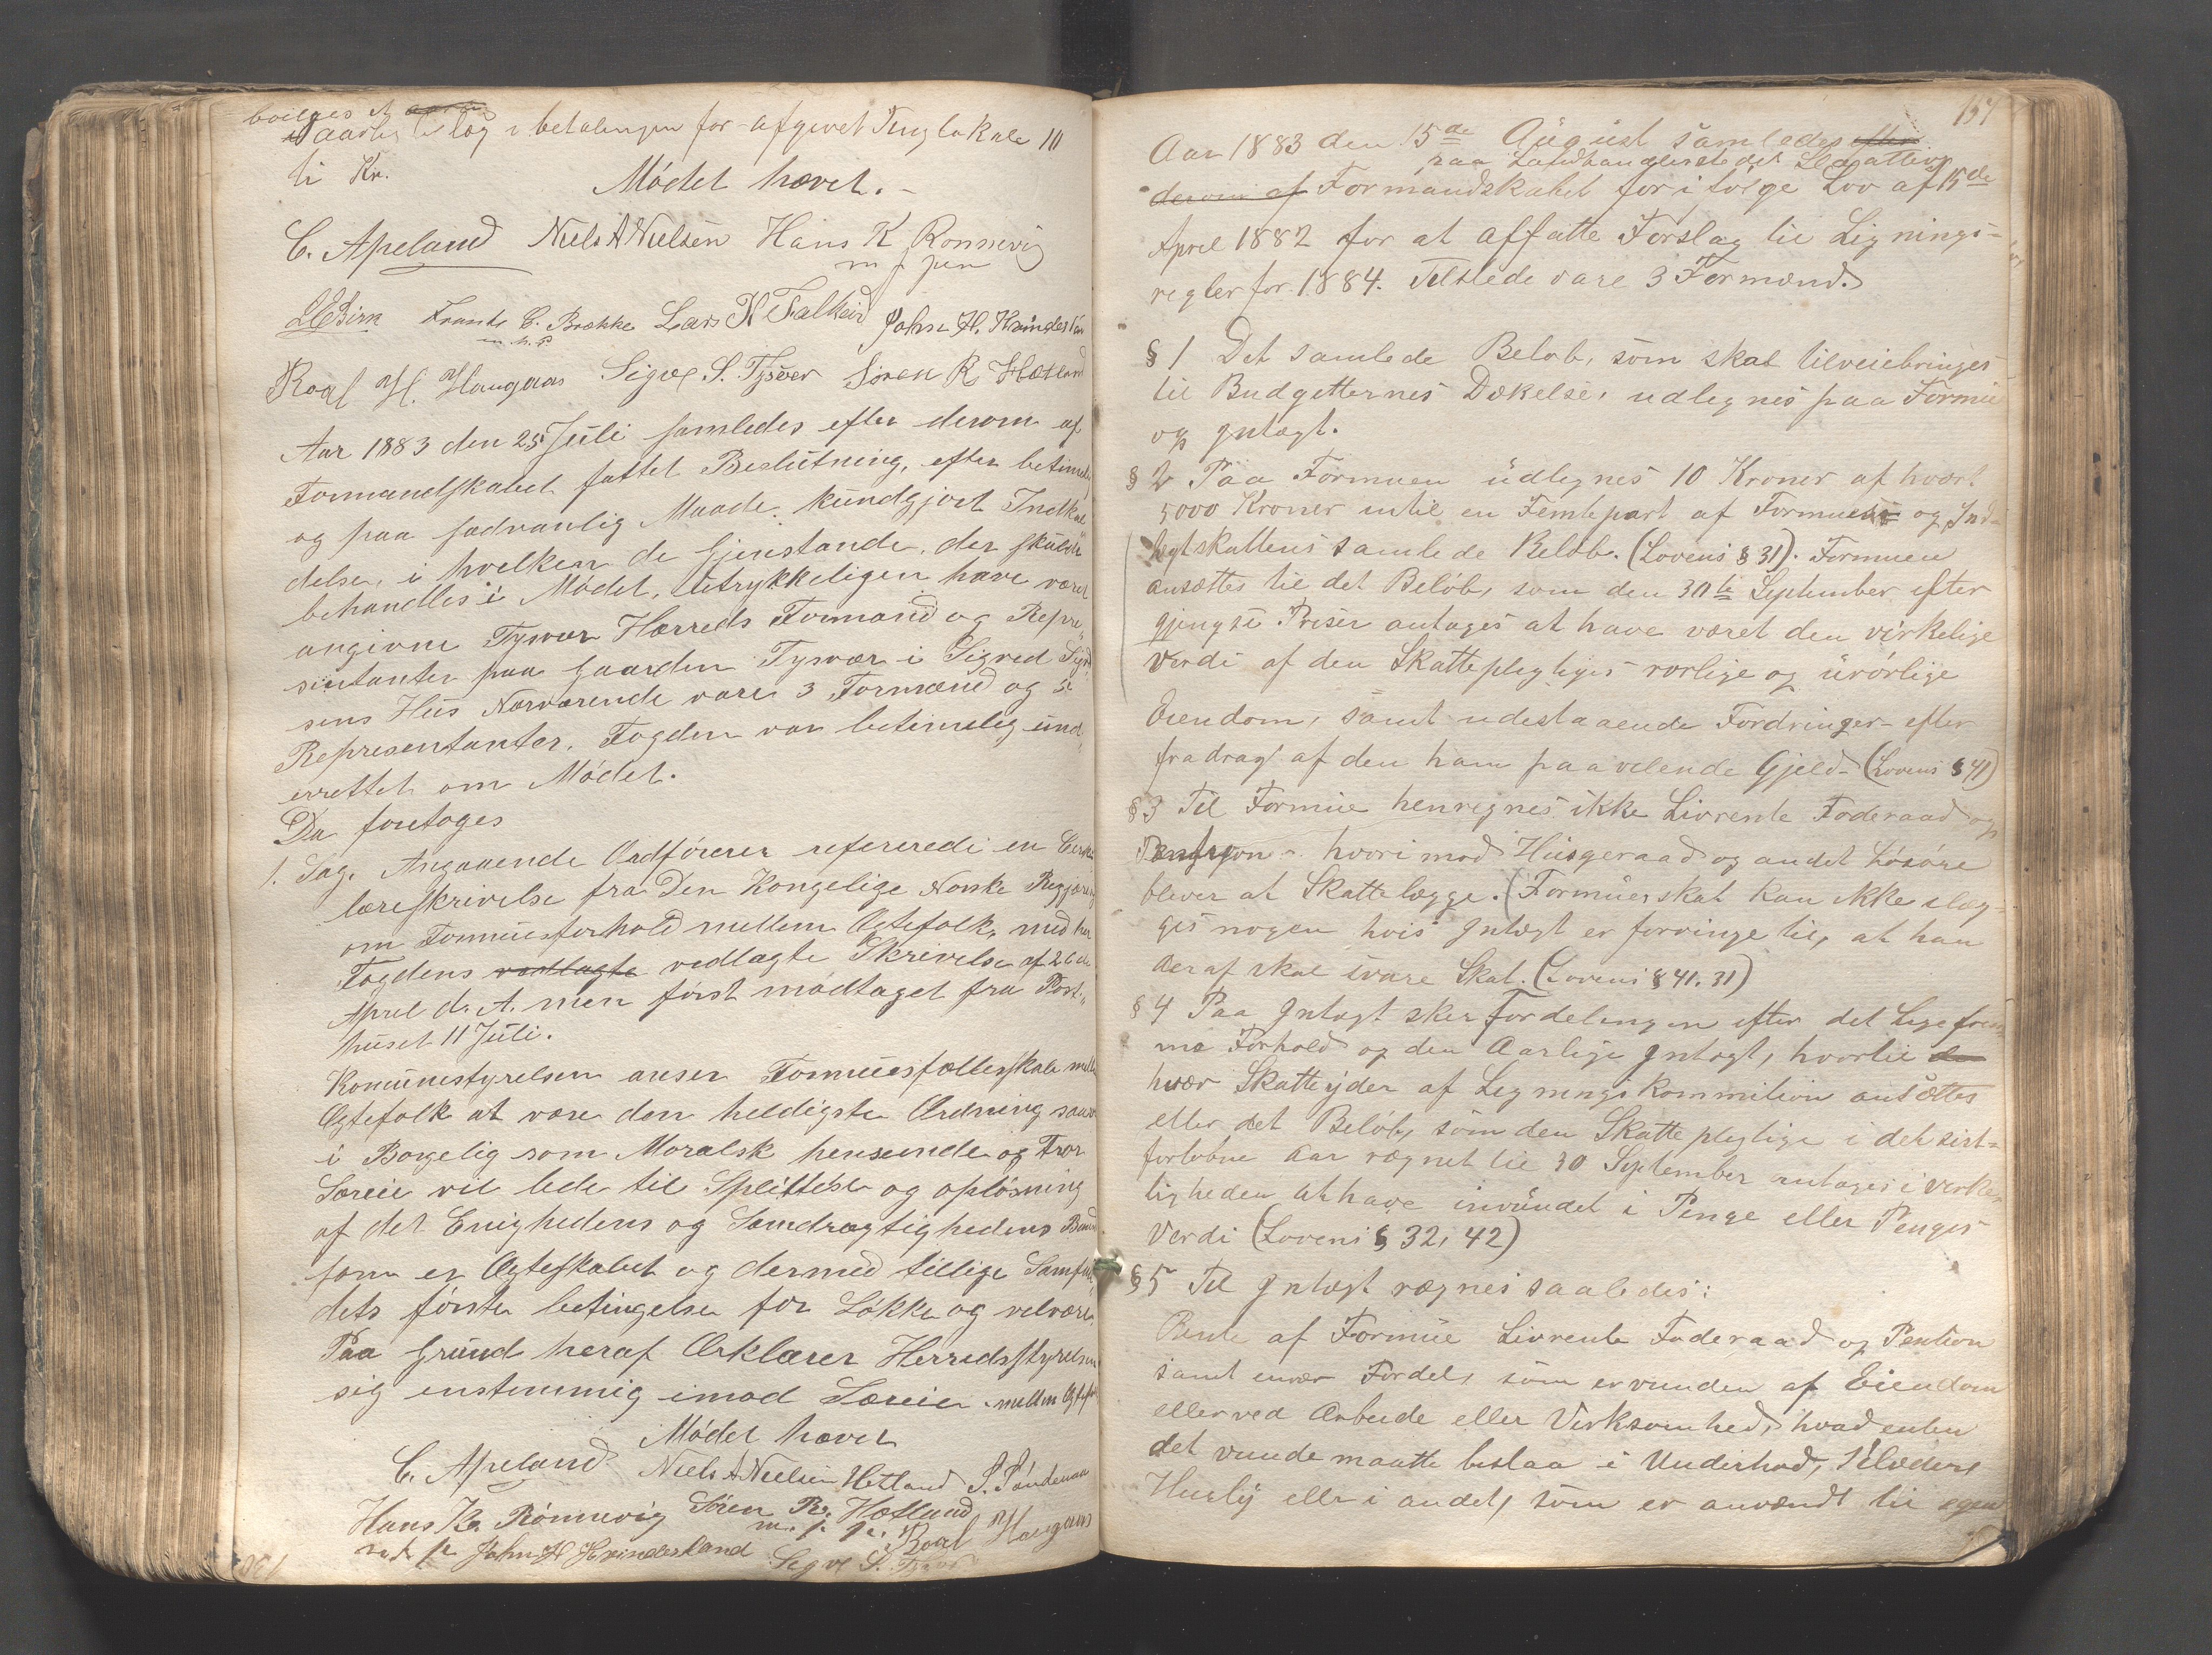 i aarlig tillæg i betalingen for afgivet Tinglokale 10
ti Kr.
Mödet hævet. -
C. Apeland Niels A Nielsen Hans K Ronnevig
m f pen
Frants C. Brække Lars K Falkeid John H. Kvindesland
m. f. P.
Roal H. Haugaas Sigve S. Tysver Sören R Hætland
Aar 1883 den 25 Juli samledes efter derom af
Formandskabet fattet Beslutning, efter betimelig
og paa sædvanlig Maade, kundgjort Indkal
delse, i hvelken de Gjenstande, der skulde
behandles i Mödet, Utrykkeligen have været
angivne Tysvær Herreds Formand og Repre
sentanter paa Gaarden Tysvær i Sigved Sigved
sens Hus Nærværende vare 3 Formænd og 5
Representanter. Fogden var betimelig und
errettet om Mödet.
Da foretoges
1. Sag. Angaaende Ordförerer refererede en Cerku
læreskrivelse fra Den Kongelige Norske Regjæring
om Formuesforhold mellem Ægtefolk, med her
Fogdens vedlagte vedlagte Skrivelse af 26de
April d. A. men först modtaget fra Post-
huset 11 Juli.
Komunestyrelsen anser Formuesfællesskab mellem
Ægtefolk at være den heldigste Ordning saavel
i Borgelig som Moralsk henseende og Tror
Særeie vil lede til Splittelse og oplösning
af det Enighedens og Samdrægtighedens Baand
som er Ægteskabet og dermed tillige Samfun
dets förste betingelse for Lökke og velvære.
Paa Grund heraf Ærklærer Herredsstyrelsen
sig enstemmig imod Særeie mellem Ægtefolk
Mödet hævet
C. Apeland Niels A Nielsen Hetland S. Söndenaa
Hans K. Rönnevig Sören R. Hætland
m. f. p. John H Kvindesland m. p. p. Roal Haugaas
Sigve S. Tysvær
157
Aar 1883 den 15de August samledes efter
paa Landhandlerstedet
derom af Formandskabet for i fölge Lov af 15de
April 1882 for at affatte Forslag til Lignings-
regler for 1884. Tilstede vare 3 Formænd.
§ 1 Det samlede Belöb, som skal tilveiebringes
til Budgetternes Dækelse, udlignes paa Formue
og Intægt.
§ 2 Paa Formuen udlignes 10 Kroner af hvert
5000 Kroner intil en Femtepart af Formues og Ind-
tægtskattens samlede Belöb. (Lovens § 31). Formuen
ansættes til det Belöb, som den 30te September efter
gjengse Priser antages at have været den virkelige
Verdi af den Skattepligtiges rörlige og urörlige
Eiendom, samt udestaaende Fordringer - efter
fradrag af den ham paavilende Gjeld - (Lovens § 41)
§ 3 Til Formue henregnes ikke Livrente Foderaad og
Pension - hvorimod Husgeraad og andet Lösöre
bliver at Skattelægge. (Formueskat kan ikke ilæg-
ges nogen hvis Intægt er for ringe til, at han
deraf skal svare Skat. (Lovens § 41. 31)
§ 4 Paa Intægt sker Fordelingen efter det Ligefrem
me Forhold og den Aarlige Intægt, hvortil
hver Skatteyder af Ligningskommition ansættes
eller det Belöb, som den Skattepligtige i det sist-
forlöbne Aar regnet til 30 September antages i verke-
ligheden at have invundet i Penge eller Penges
Verdi (Lovens § 32, 42)
§ 5 Til Intægt regnes saaledes:
Rente af Formue Livrente Foderaad og Pention
samt enver Fordel, som er vunden af Eiendom
eller ved Arbeide eller Virksomhed, hvad enten
det vunde maatte bestaa i Underhod, Klæder
Husly eller i andet, som er anvendt til egen